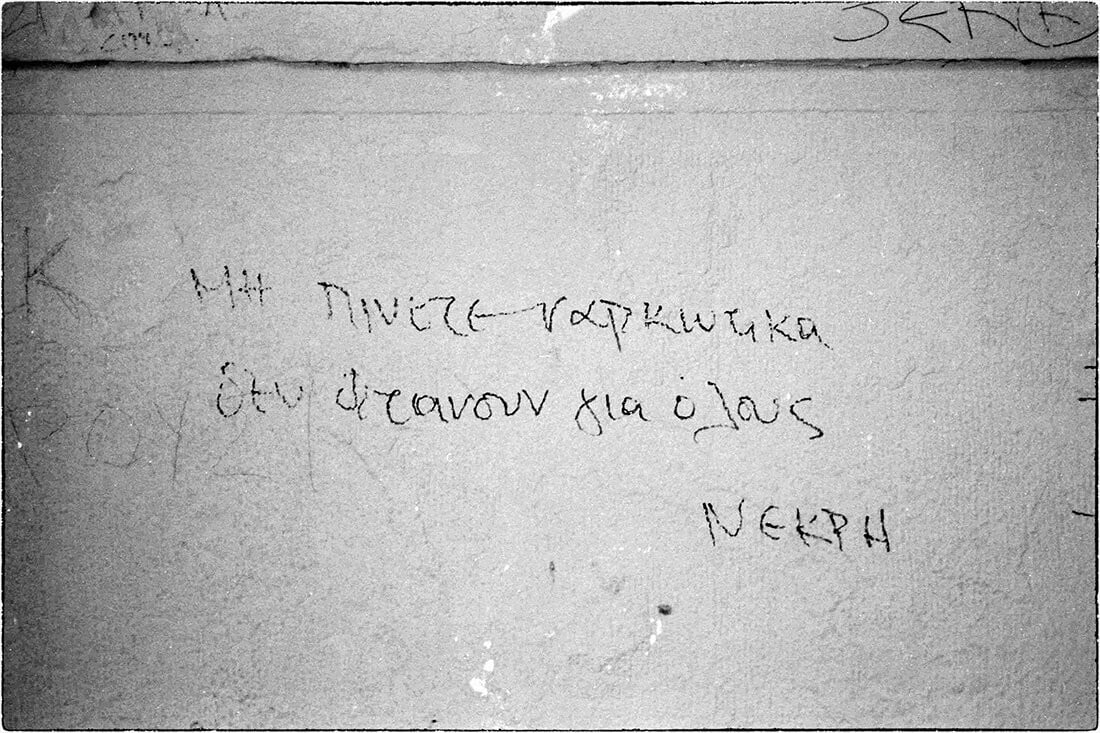 ΜΗ πινετε ναρκωτικα
δεν φτανουν για όλους
ΝΕΚΡΗ